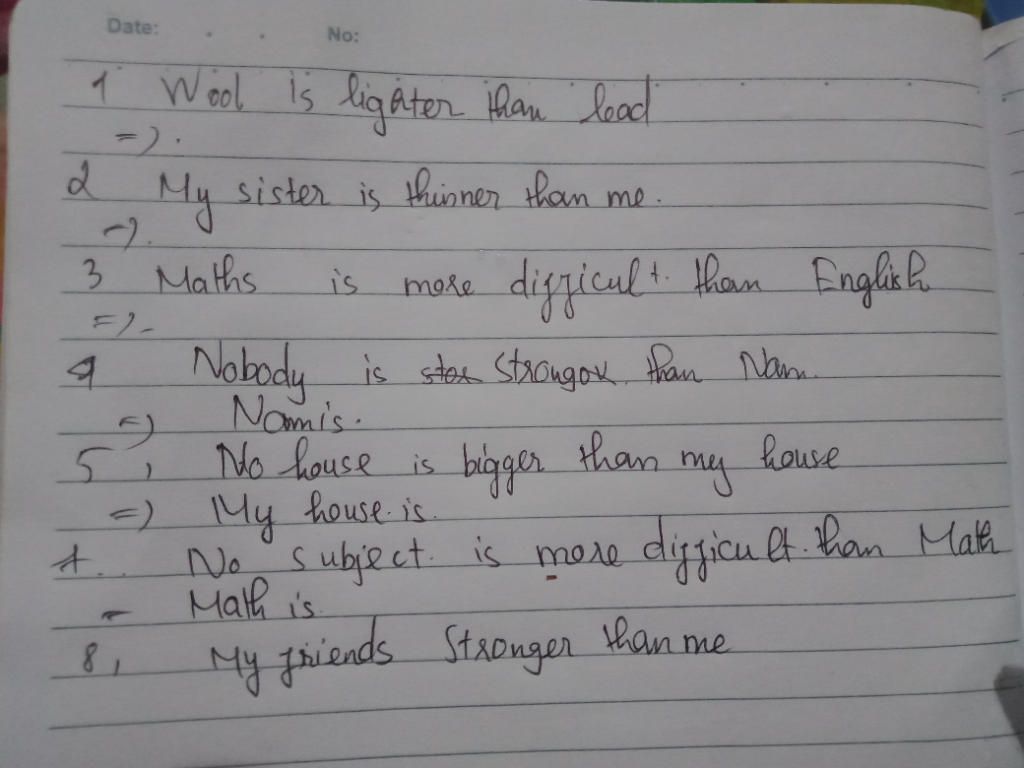 Date: . . No:
1 Wool is lighter than lead
=) .
2 My sister is thinner than me.
=).
3 Maths is more difficult. than English
=) -
4 Nobody is stor strongor. than Nam.
=) Nam is.
5, No house is bigger than my house
=) My house is
7. No subject. is more difficult. than Math
- Math is
8, My friends stronger than me